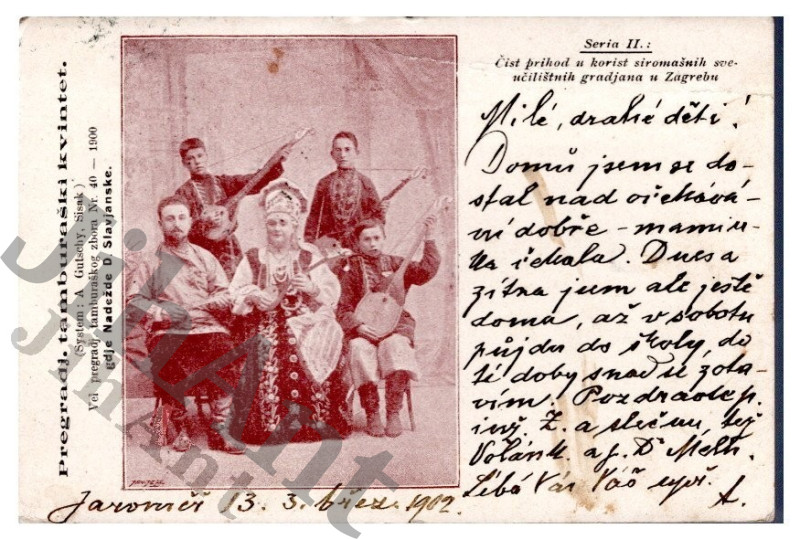 Pregradj. tamburaški kvintet.
(System: A Gutschy, Sisak)
Vel pregradj tamburaškog zbora Nr. 40 — 1900
gdje Nadežde D. Slavjanske.
Seria II.:
Čist prihod u korist siromašnih sve-
učilištnih gradjana u Zagrebu
Milé, drahé děti!
Domů jsem se do-
stal nad očekává-
ní dobře - mamin-
ka čekala. Dnes a
zítra jsem ale ještě
doma, až v sobotu
půjdu do školy, do
té doby snad se zota-
vím. Pozdravte p.
inž. Z. a slečnu, též
Volánk. a p. Dr
Líbá Vás Váš
A.
Jaroměř 13. 3. břez. 1902
JihAnt
JihAnt